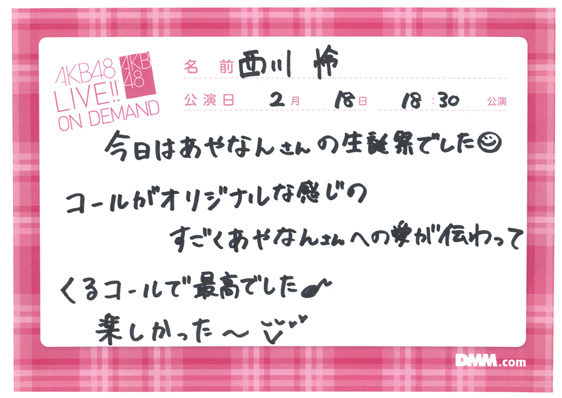 AKB48
LIVE!!
ON DEMAND
AKB
48
名前 西川 怜
公演日 2月 18日 18:30 公演
今日はあやなんさんの生誕祭でした
コールがオリジナルな感じの
すごくあやなんさんへの愛が伝わって
くるコールで最高でした♪
楽しかった〜
DMM.com